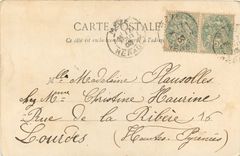 CARTE POSTALE
Ce côté est exclusivement réservé à l'adresse
Mlle Madeleine Plusolles
chez Mme Christine Haurine
Rue de la Ribère 16
Lourdes (Hautes Pyrénées)